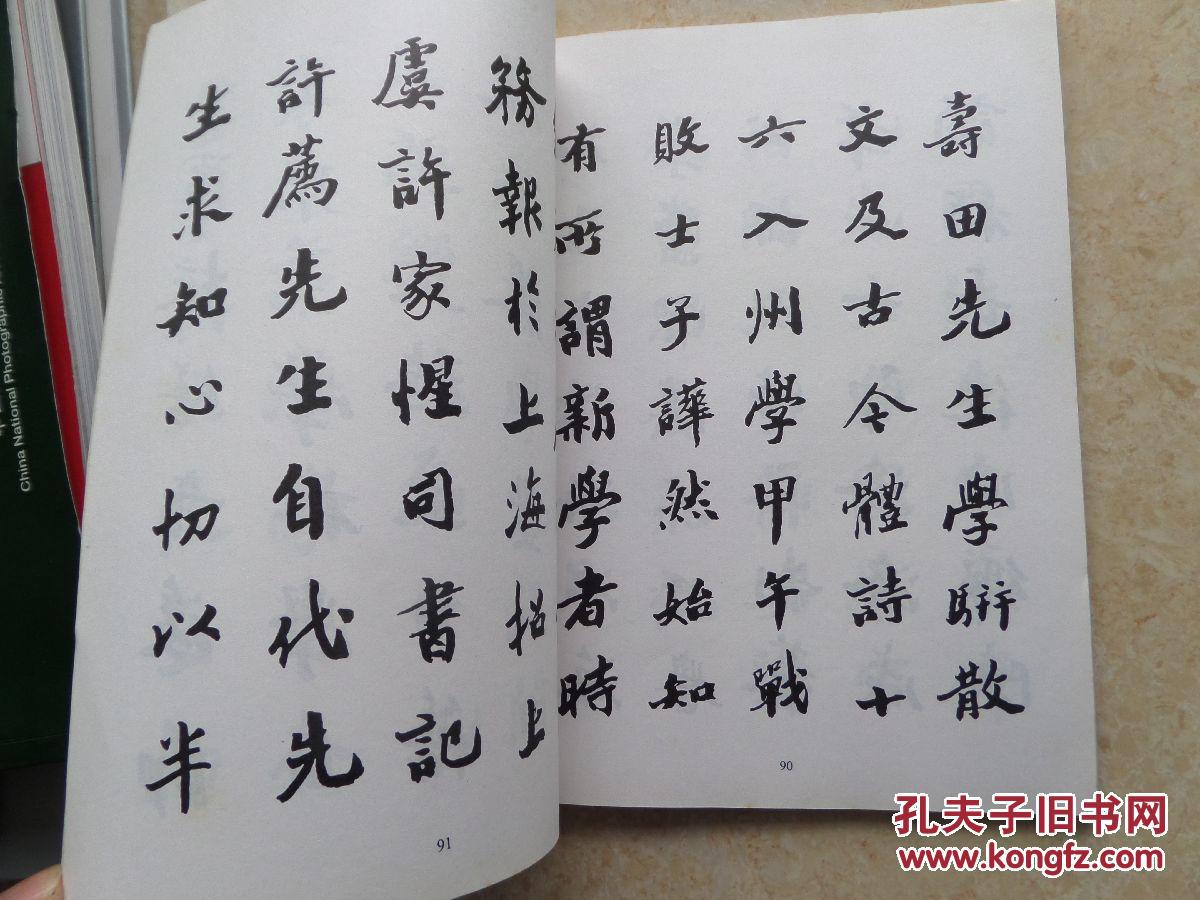 壽田先生學駢散
文及古今體詩十
六入州學甲午戰
敗士子譁然始知
有所謂新學者時
90
務報於上海招上
虞許家惺司書記
許薦先生自代先
生求知心切以半
91
China National Photographic
孔夫子旧书网
www.kongfz.com